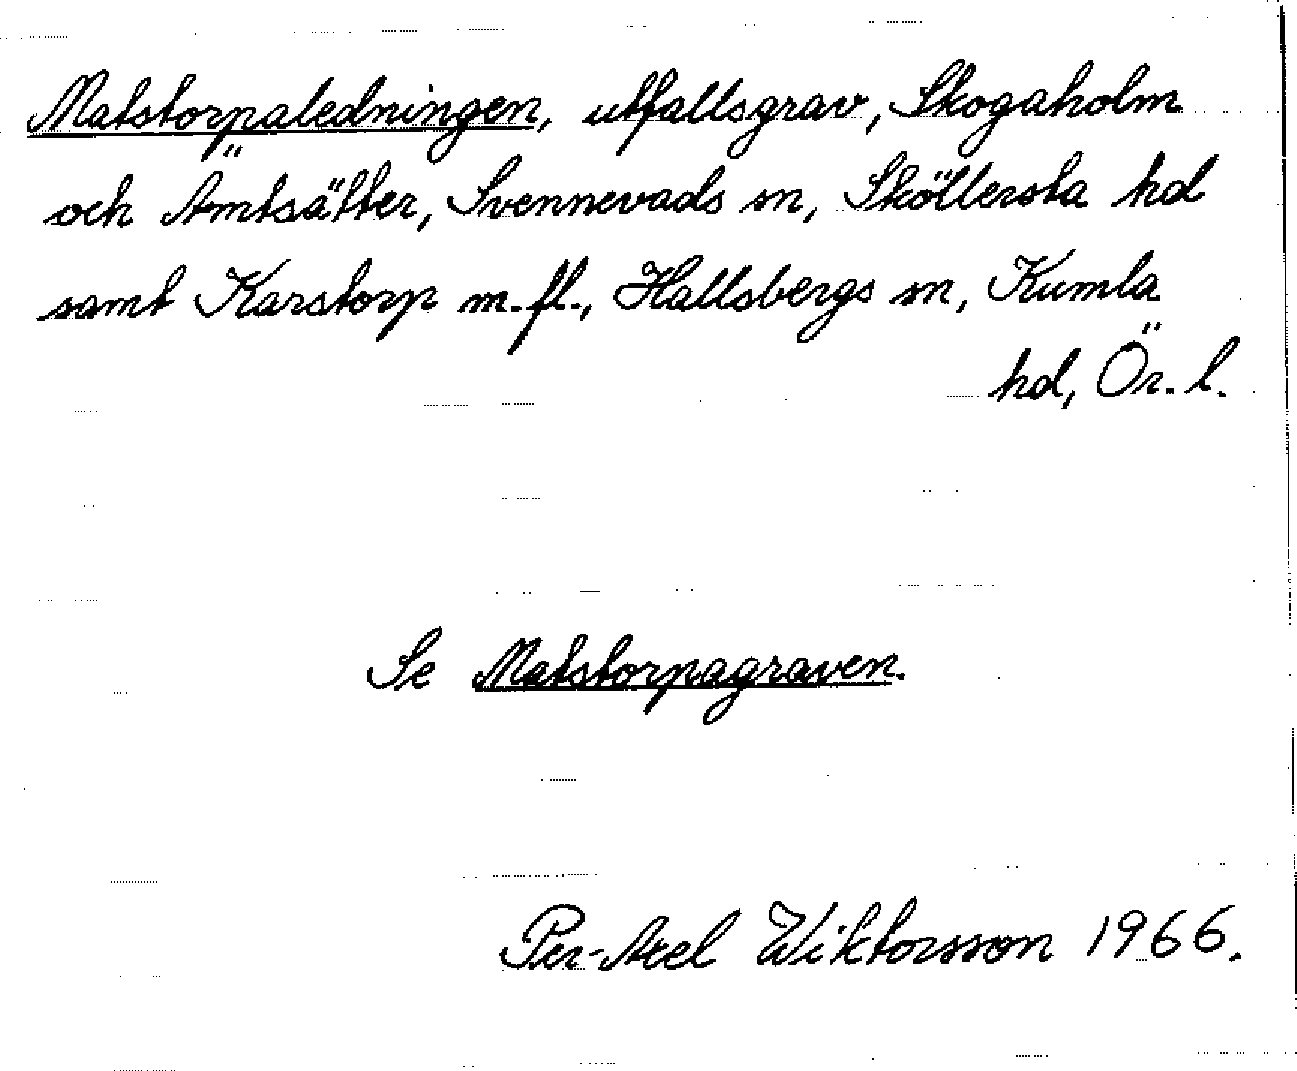 Matstorpaledningen, utfallsgrav, Skogaholm
och Ämtsätter, Svennevads sn, Sköllersta hd
samt Karstorp m.fl., Hallsbergs sn, Kumla
hd, Ör. l.
Se Matstorpagraven.
Per-Axel Wiktorsson 1966.